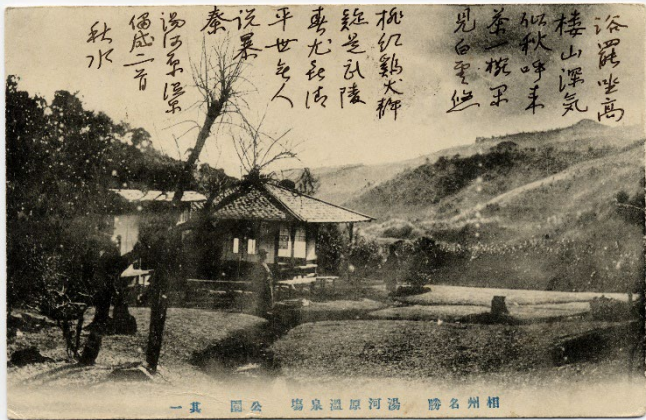 浴罷坐高
楼山深気
似秋呼来
茶一椀
見白雲悠
桃紅鶏犬
疑是武陵
春尤喜清
平世無人
説暴
秦
湯河原
偶成二首
秋水
相州名勝 湯河原溫泉塲 公園 其一